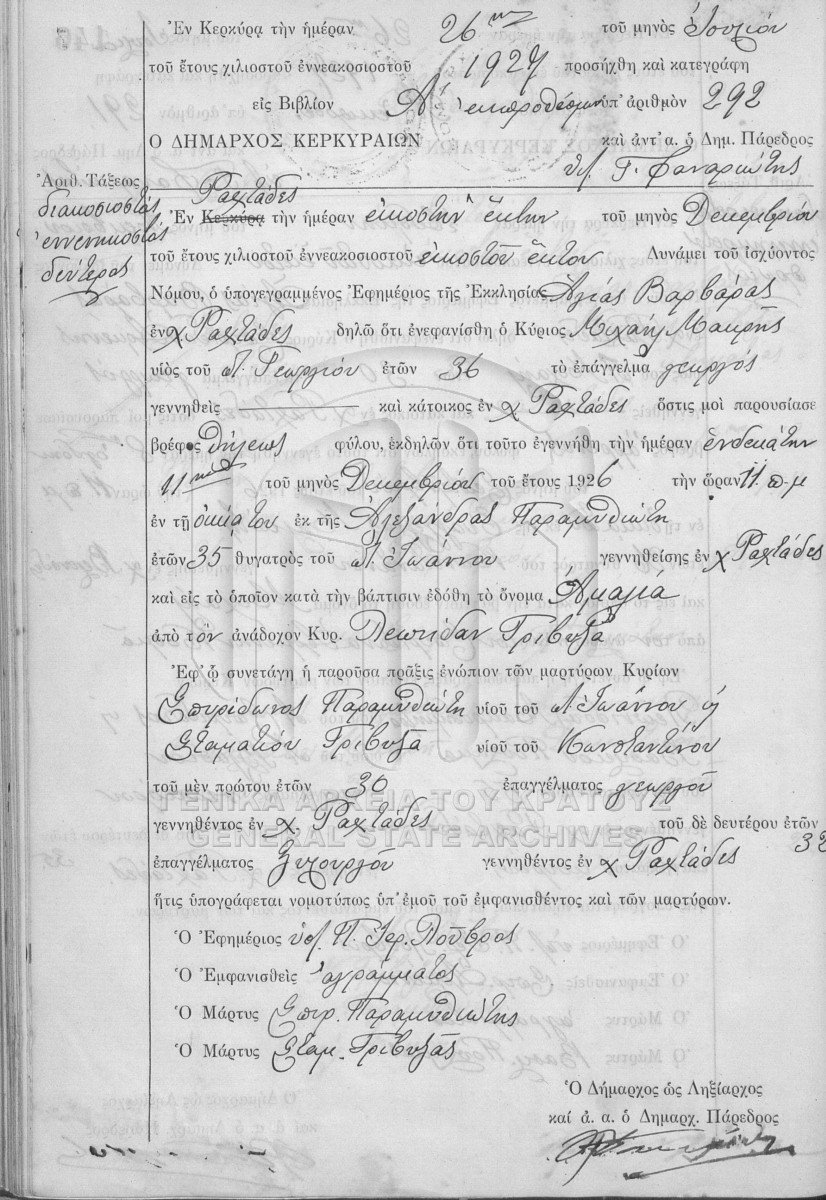 Ἐν Κερκύρᾳ τὴν ἡμέραν 26ην τοῦ μηνὸς Ἰουλίου
τοῦ ἔτους χιλιοστοῦ ἐννεακοσιοστοῦ 1927 προσήχθη καὶ κατεγράφη
εἰς Βιβλίον Α ἐκπροθέσμων ὑπ' ἀριθμὸν 292
Ο ΔΗΜΑΡΧΟΣ ΚΕΡΚΥΡΑΙΩΝ καὶ ἀντ' α. ὁ Δημ. Πάρεδρος
ὑπ. Γ. Φαναριώτης
Ἀριθ. Τάξεως
διακοσιοστὸς
ἐννενηκοστὸς
δεύτερος
Ραχτάδες
Ἐν Κερκύρᾳ τὴν ἡμέραν εἰκοστὴν ἕκτην τοῦ μηνὸς Δεκεμβρίου
τοῦ ἔτους χιλιοστοῦ ἐννεακοσιοστοῦ εἰκοστοῦ ἕκτου Δυνάμει τοῦ ἰσχύοντος
Νόμου, ὁ ὑπογεγραμμένος Ἐφημέριος τῆς Ἐκκλησίας Ἁγίας Βαρβάρας
ἐν χ Ραχτάδες δηλῶ ὅτι ἐνεφανίσθη ὁ Κύριος Μιχαὴλ Μακρῆς
υἱὸς τοῦ Γεωργίου ἐτῶν 36 τὸ ἐπάγγελμα γεωργός
γεννηθεὶς καὶ κάτοικος ἐν χ Ραχτάδες ὅστις μοὶ παρουσίασε
βρέφος θήλεως φύλου, ἐκδηλῶν ὅτι τοῦτο ἐγεννήθη τὴν ἡμέραν ἑνδεκάτην
11ην τοῦ μηνὸς Δεκεμβρίου τοῦ ἔτους 1926 τὴν ὥραν 11 π-μ
ἐν τῇ οἰκίᾳ του ἐκ τῆς Ἀλεξάνδρας Παραμυθιώτη
ἐτῶν 35 θυγατρὸς τοῦ Ἰωάννου γεννηθείσης ἐν χ Ραχτάδες
καὶ εἰς τὸ ὁποῖον κατὰ τὴν βάπτισιν ἐδόθη τὸ ὄνομα Ἀμαλία
ἀπὸ τὸν ἀνάδοχον Κυρ. Λεωνίδαν Γρίβυζᾶ
Ἐφ' ᾧ συνετάγη ἡ παροῦσα πρᾶξις ἐνώπιον τῶν μαρτύρων Κυρίων
Σπυρίδωνος Παραμυθιώτη υἱοῦ τοῦ Ἰωάννου ἢ
Σταματίου Γρίβυζᾶ υἱοῦ τοῦ Κωνσταντίνου
τοῦ μὲν πρώτου ἐτῶν 30 ἐπαγγέλματος γεωργοῦ
ΓΕΝΙΚΑ ΑΡΧΕΙΑ ΤΟΥ ΚΡΑΤΟΥΣ
γεννηθέντος ἐν χ. Ραχτάδες τοῦ δὲ δευτέρου ἐτῶν 32
GENERAL STATE ARCHIVES
ἐπαγγέλματος ξυλουργοῦ γεννηθέντος ἐν χ Ραχτάδες
ἥτις ὑπογράφεται νομοτύπως ὑπ' ἐμοῦ τοῦ ἐμφανισθέντος καὶ τῶν μαρτύρων.
Ὁ Ἐφημέριος ὑπ. Π. Ἱερ. Λοῦβρος
Ὁ Ἐμφανισθεὶς ἀγράμματος
Ὁ Μάρτυς Σπυρ. Παραμυθιώτης
Ὁ Μάρτυς Σταμ. Γρίβυζᾶς
Ὁ Δήμαρχος ὡς Ληξίαρχος
καί ἀ. α. ὁ Δημαρχ. Πάρεδρος